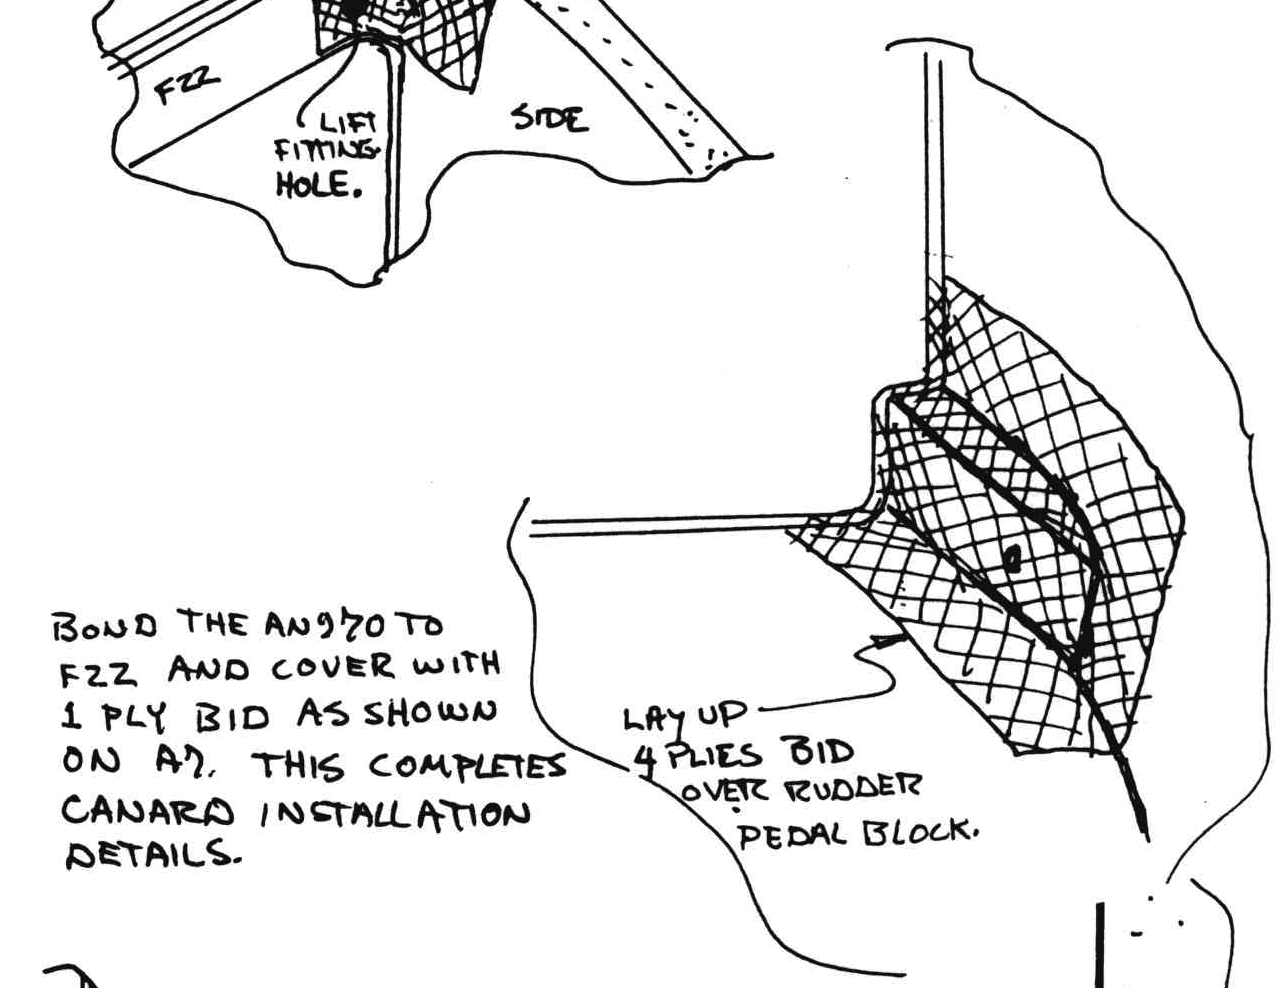 F22
LIFT
FITTING
HOLE.
SIDE
BOND THE AN970 TO
F22 AND COVER WITH
1 PLY BID AS SHOWN
ON A7. THIS COMPLETES
CANARD INSTALLATION
DETAILS.
LAY UP
4 PLIES BID
OVER RUDDER
PEDAL BLOCK.